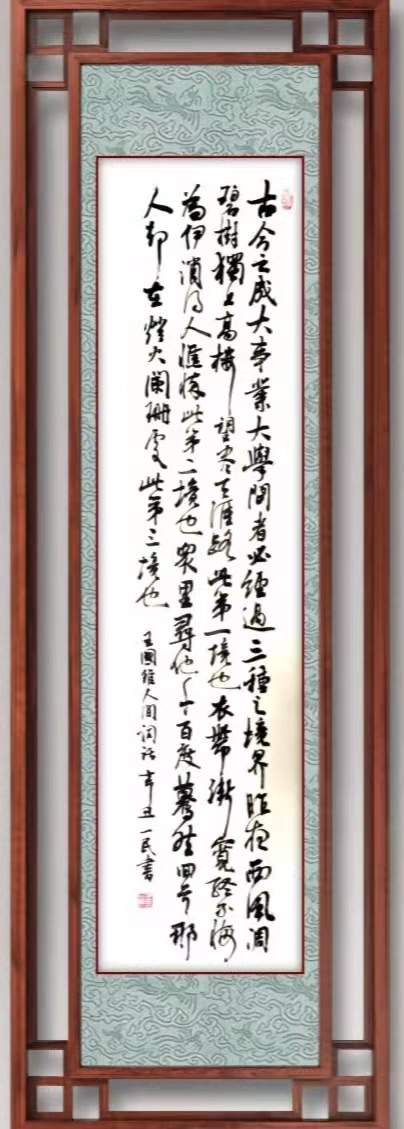 古今之成大事業大學問者必經過三種之境界昨夜西風凋
碧樹獨上高樓望盡天涯路此第一境也衣帶漸寬終不悔
為伊消得人憔悴此第二境也眾里尋他々千百度驀然回首那
人却在燈火闌珊處此第三境也
王國維人間詞話 辛丑一民書